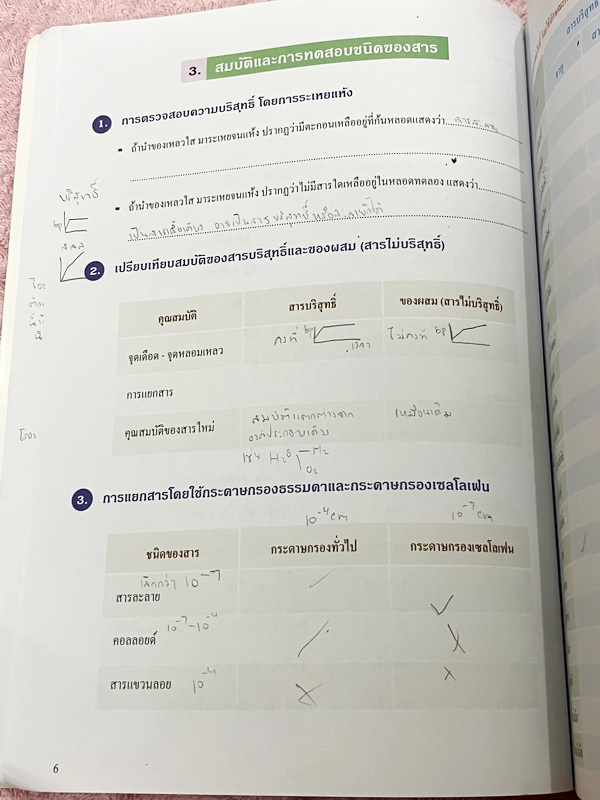 3. สมบัติและการทดสอบชนิดของสาร
1. การตรวจสอบความบริสุทธิ์ โดยการระเหยแห้ง
▪ ถ้านำของเหลวใส มาระเหยจนแห้ง ปรากฏว่ามีตะกอนเหลืออยู่ที่ก้นหลอดแสดงว่า
▪ ถ้านำของเหลวใส มาระเหยจนแห้ง ปรากฏว่าไม่มีสารใดเหลืออยู่ในหลอดทดลอง แสดงว่า
เป็นสารเนื้อเดียว อาจเป็นสารบริสุทธิ์หรือ
บริสุทธิ์
bp
2. เปรียบเทียบสมบัติของสารบริสุทธิ์และของผสม (สารไม่บริสุทธิ์)
คุณสมบัติ สารบริสุทธิ์ ของผสม (สารไม่บริสุทธิ์)
จุดเดือด - จุดหลอมเหลว คงที่ bp เวลา ไม่คงที่ bp
การแยกสาร
คุณสมบัติของสารใหม่ สมบัติแตกต่างจาก เหมือนเดิม
องค์ประกอบเดิม
เช่น H₂O H₂
O₂
3. การแยกสารโดยใช้กระดาษกรองธรรมดาและกระดาษกรองเซลโลเฟน
10⁻⁴ cm 10⁻⁷ cm
ชนิดของสาร กระดาษกรองทั่วไป กระดาษกรองเซลโลเฟน
เล็กกว่า 10⁻⁷
สารละลาย
คอลลอยด์ 10⁻⁷-10⁻⁴
สารแขวนลอย 10⁻⁴
6